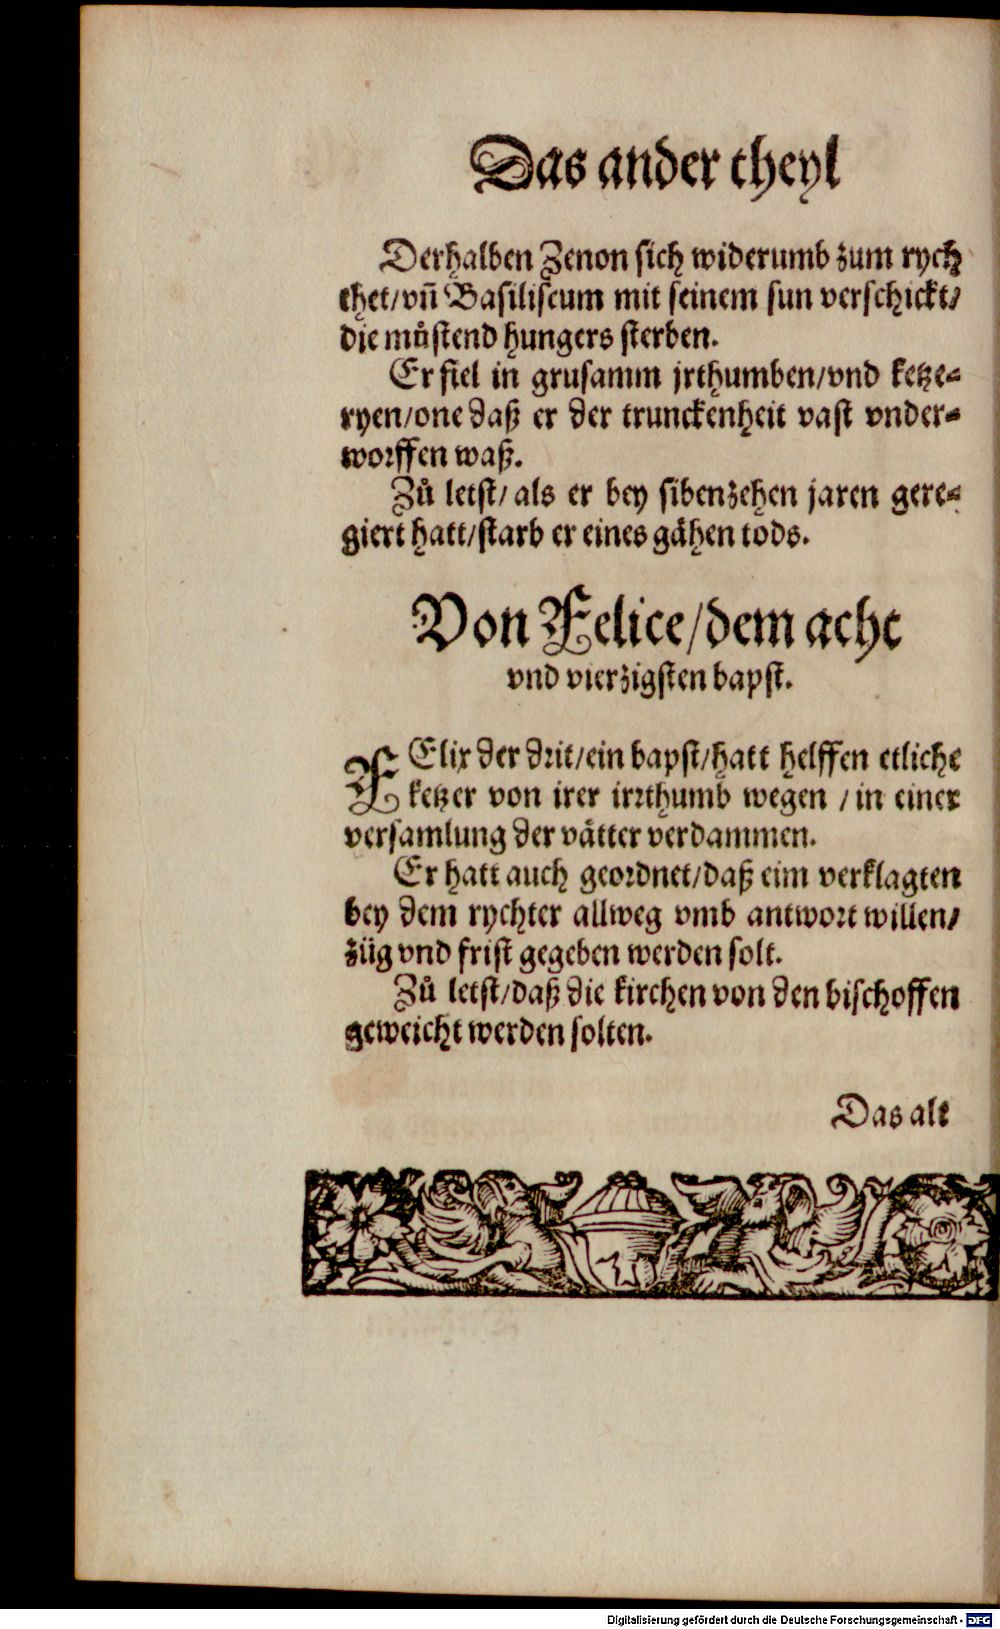 Das ander theyl
Derhalben Zenon sich widerumb zum rych
thet/vñ Basiliscum mit seinem sun verschickt/
die můstend hungers sterben.
Er fiel in grusamm jrthumben/vnd ketze-
ryen/one daß er der trunckenheit vast vnder-
worffen waß.
Zů letst/als er bey sibenzehen jaren gere-
giert hatt/starb er eines gåhen tods.
Von Felice/dem acht
vnd vierzigsten bapst.
FElix der drit/ein bapst/hatt helffen etliche
ketzer von irer irrthumb wegen /in einer
versamlung der våtter verdammen.
Er hatt auch geordnet/daß eim verklagten
bey dem rychter allweg vmb antwort willen/
züg vnd frist gegeben werden solt.
Zů letst/daß die kirchen von den bischoffen
geweicht werden solten.
Das alt
Digitalisierung gefördert durch die Deutsche Forschungsgemeinschaft - DFG